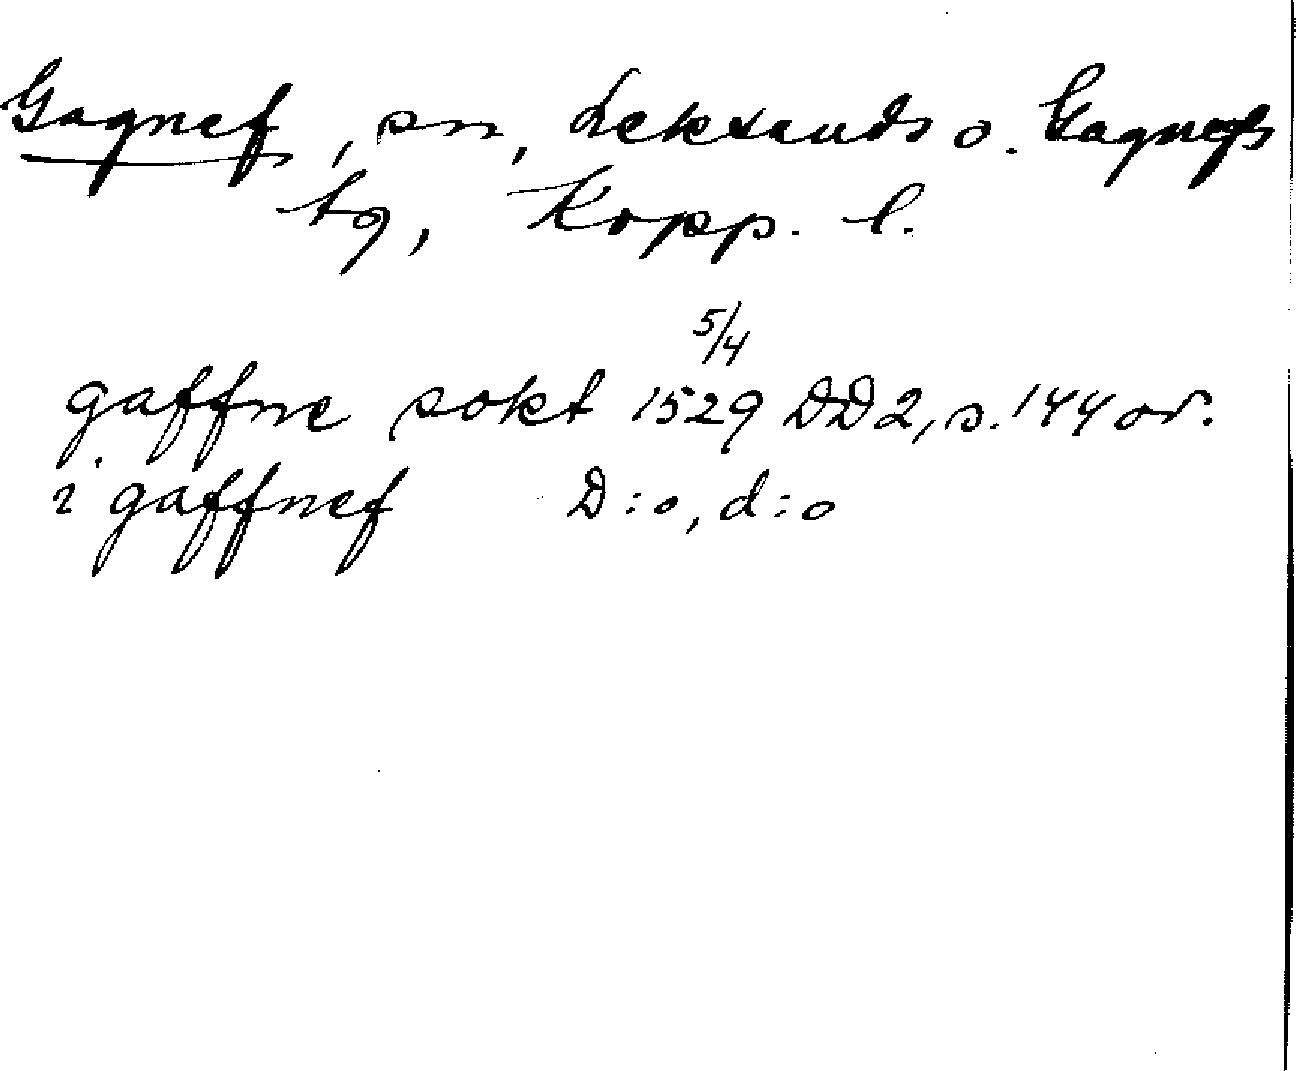 Gagnef, sn, Leksands o. Gagnefs
tg, Kopp. l.
5/4
gaffne sokt 1529 DD2, s. 144 or.
i gaffnef D:o, d:o